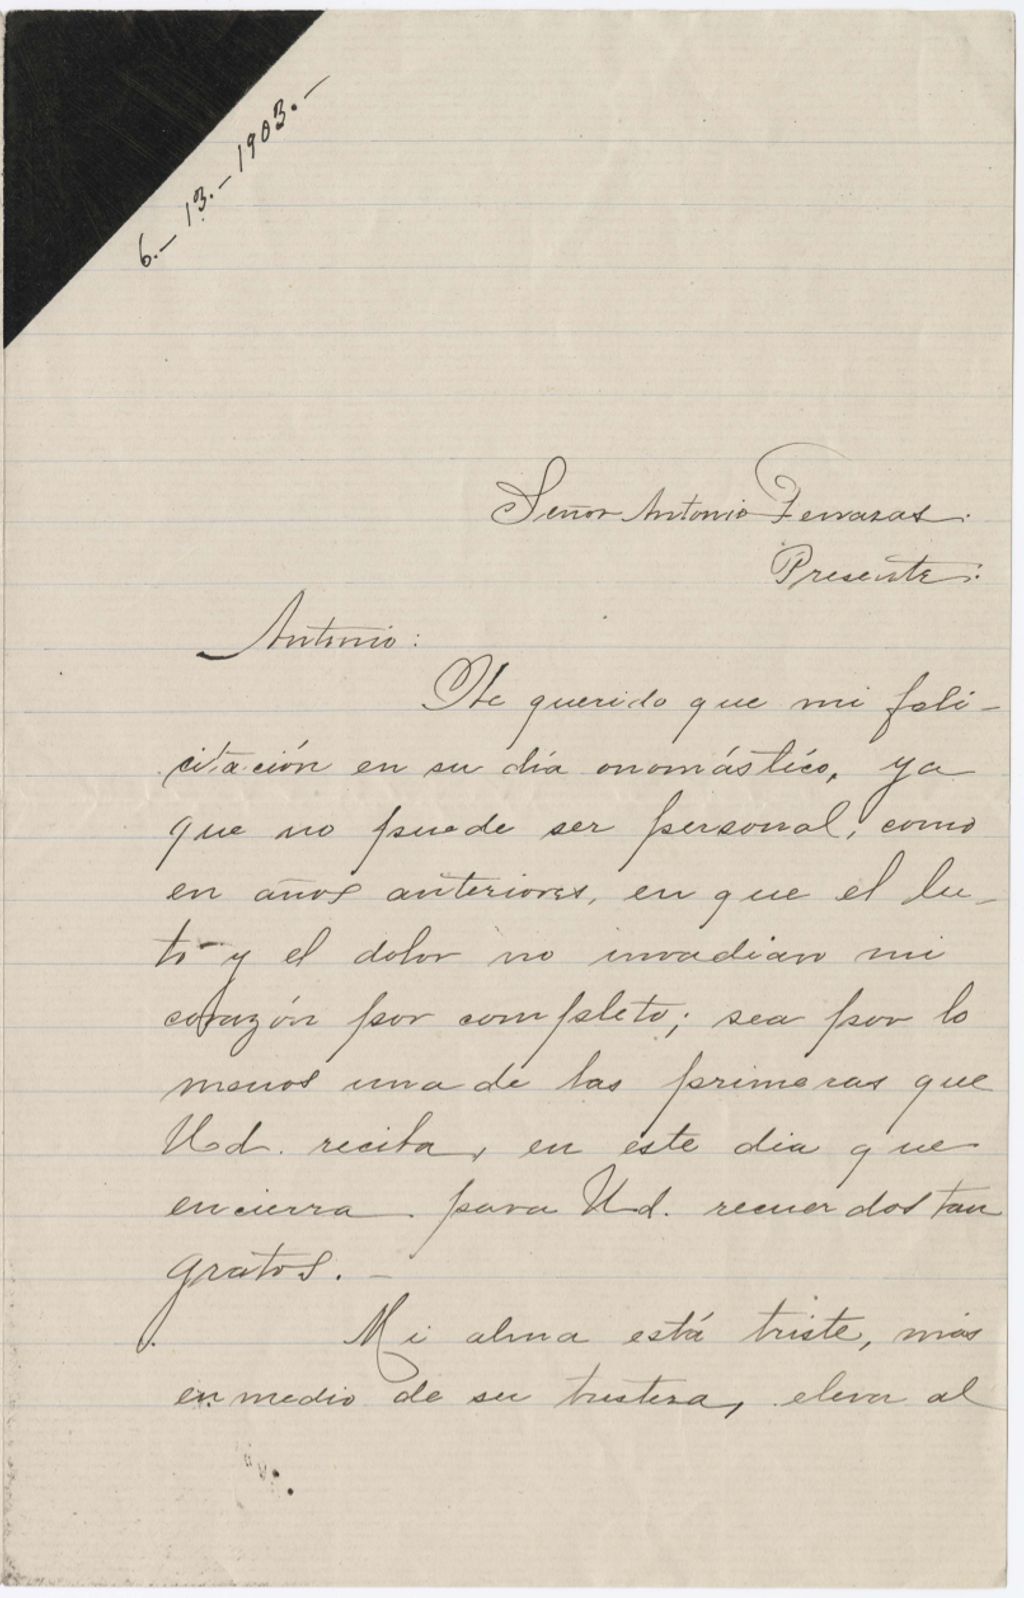 6.- 13.- 1903.-
Señor Antonio Terrazas.
Presente:
Antonio:
He querido que mi feli-
citación en su día onomástico, ya
que no puede ser personal, como
en años anteriores, en que el lu-
to y el dolor no invadian mi
corazón por completo; sea por lo
menos una de las primeras que
Ud. reciba, en este dia que
encierra para Ud. recuerdos tan
gratos.-
Mi alma está triste, mas
en medio de su tristeza, eleva al